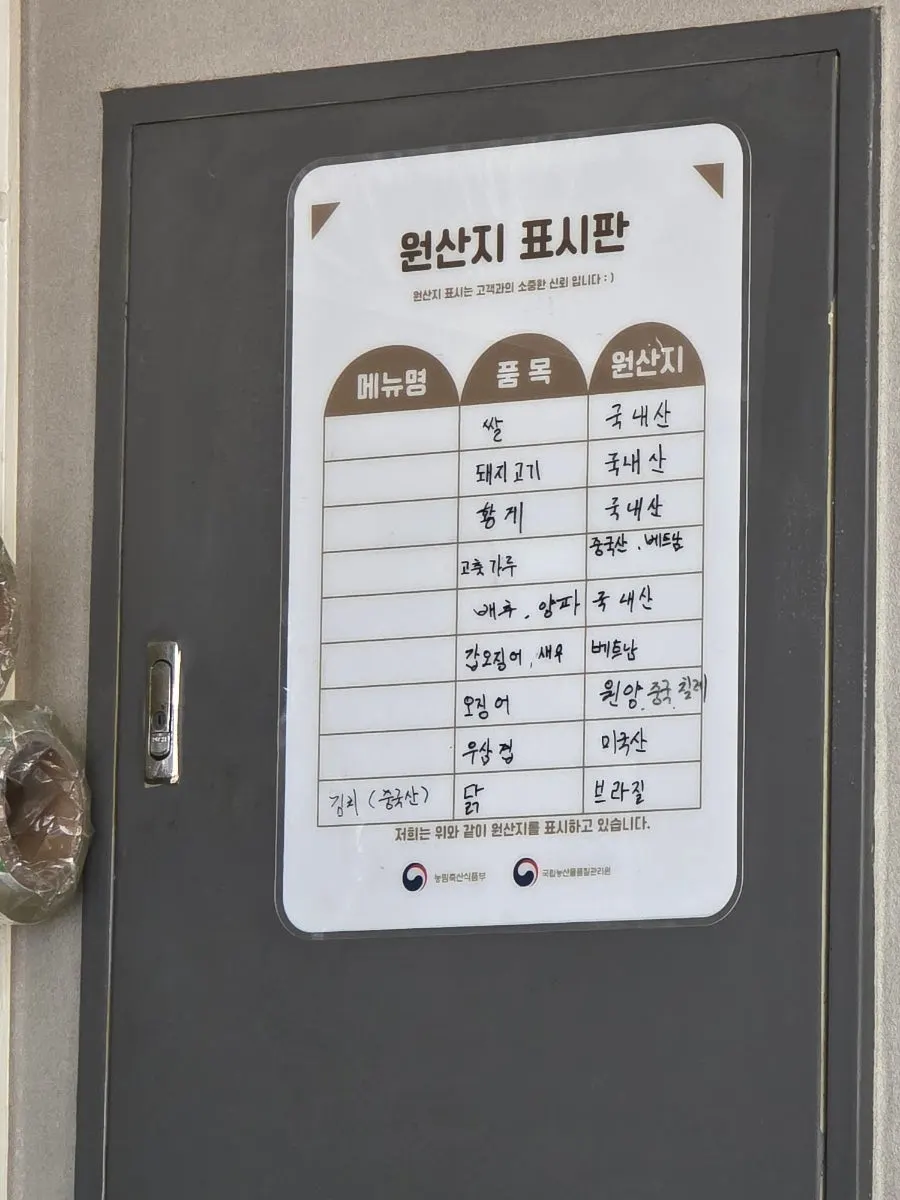 원산지 표시판
원산지 표시는 고객과의 소중한 신뢰 입니다 : )
메뉴명 품목 원산지
쌀 국내산
돼지고기 국내산
황게 국내산
고춧가루 중국산 . 베트남
배추 . 양파 국내산
갑오징어 , 새우 베트남
오징어 원양 . 중국 . 칠레
우삼겹 미국산
김치 (중국산) 닭 브라질
저희는 위와 같이 원산지를 표시하고 있습니다.
농림축산식품부 국립농산물품질관리원